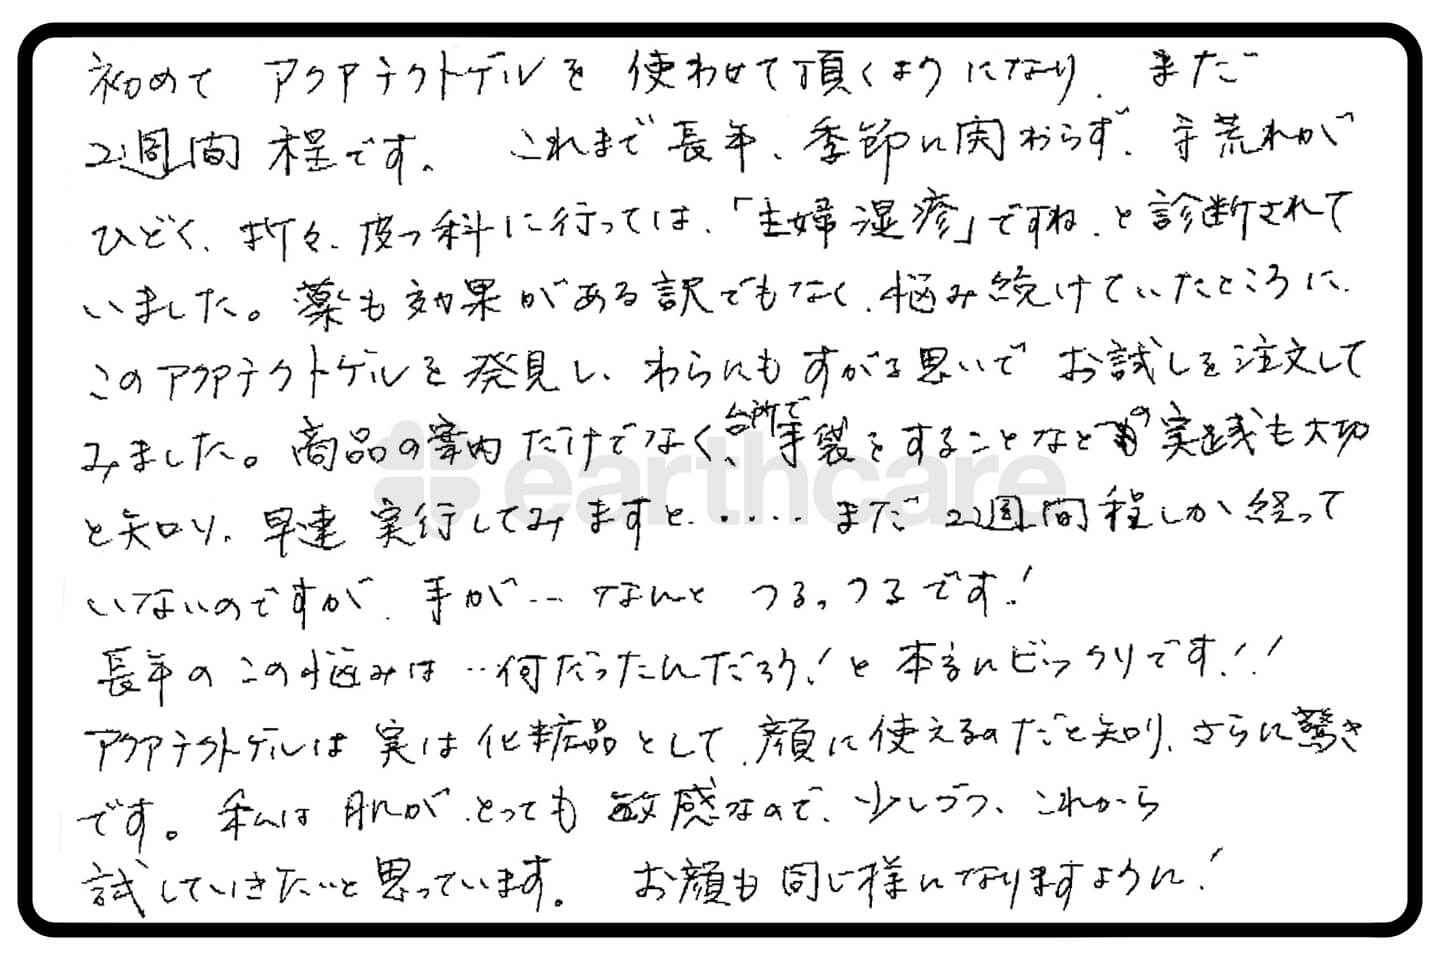 初めて アクアテクトゲルを 使わせて頂くようになり、まだ
2週間程です。 これまで長年、季節に関わらず、手荒れが
ひどく、折々、皮フ科に行っては、「主婦湿疹」ですね、と診断されて
いました。薬も効果がある訳でもなく、悩み続けていたところに、
このアクアテクトゲルを発見し、わらにもすがる思いで お試しを注文して
みました。商品の案内だけでなく、台所で手袋をすることなどの実践も大切
と知り、早速 実行してみますと、・・・・ まだ 2週間程しか経って
いないのですが、手が… なんと つるっつるです!
長年の この悩みは …何だったんだろう!と 本当にビックリです!!
アクアテクトゲルは 実は 化粧品として、顔に使えるのだと知り、さらに驚き
です。私は 肌が、とっても 敏感なので、少しづつ、これから
試していきたいと思っています。 お顔も 同じ様になりますように!
earthcare